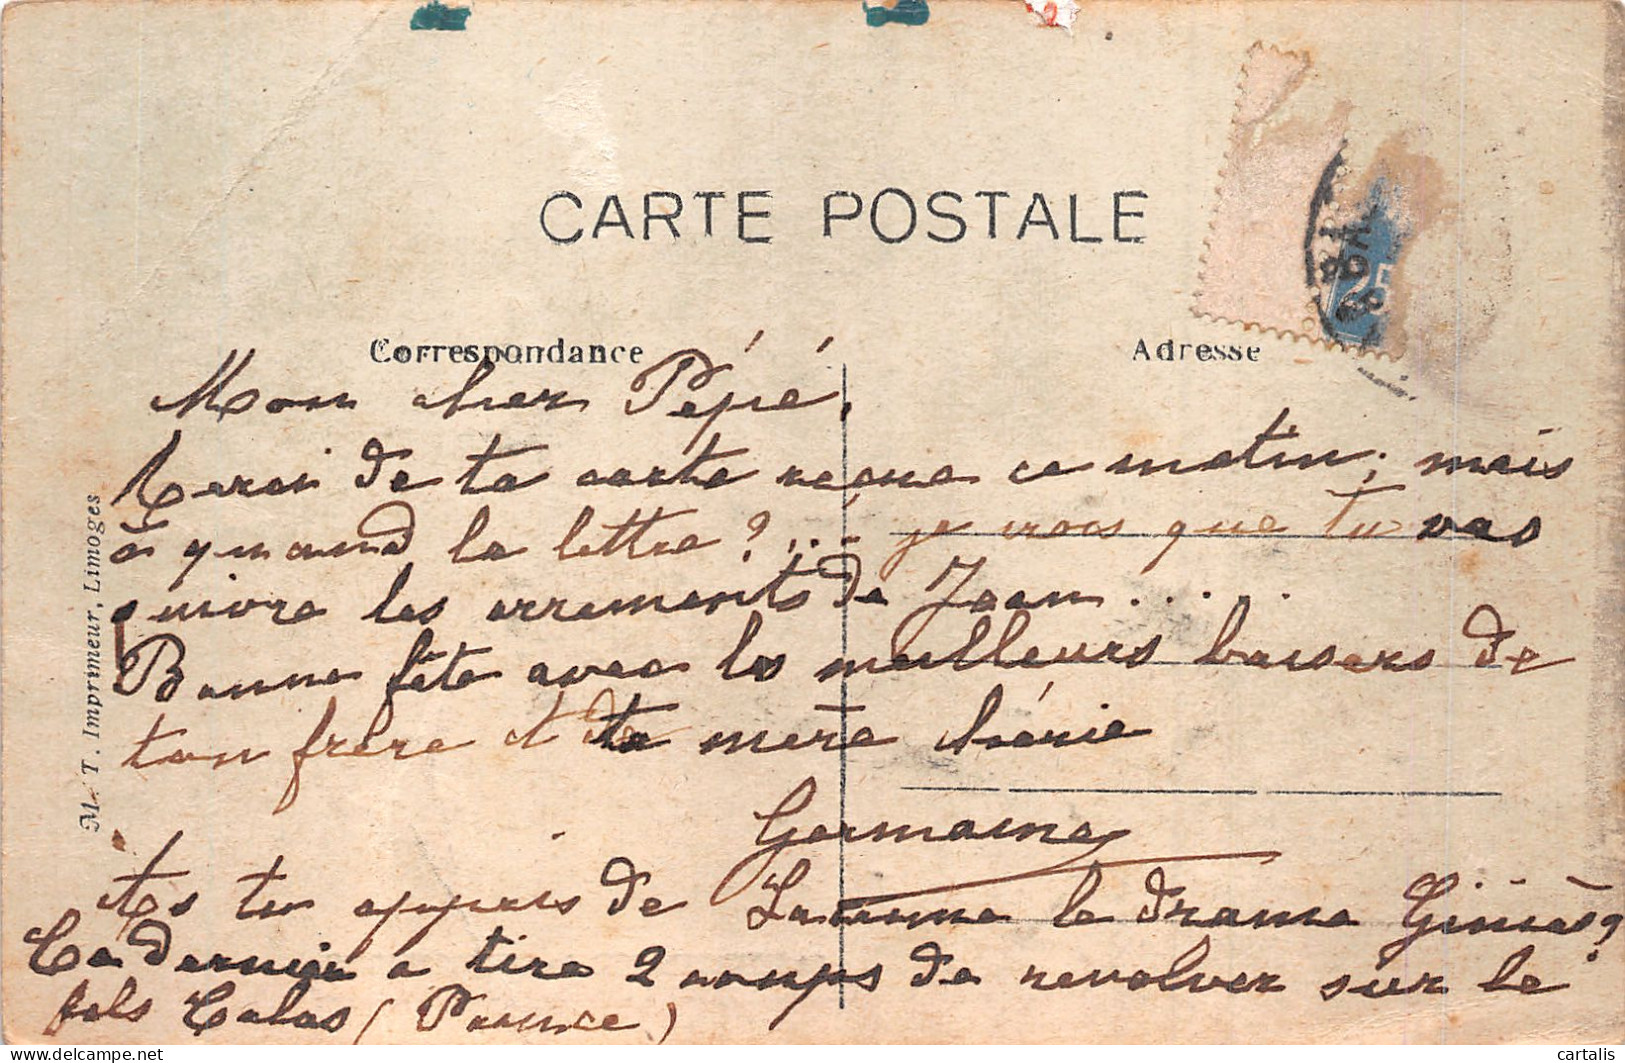 CARTE POSTALE
Correspondance
Adresse
25
Mon cher Pépé,
Merci de ta carte reçue ce matin; mais
à quand la lettre ?... je crois que tu vas
suivre les errements de Jean.....
Bonne fête avec les meilleurs baisers de
ton frère et de ta mère chérie
Germaine
As tu appris de le drame ?
Ce dernier a tiré 2 coups de revolver sur le
fils Calas ( )
M. T. Imprimeur, Limoges
cartalis